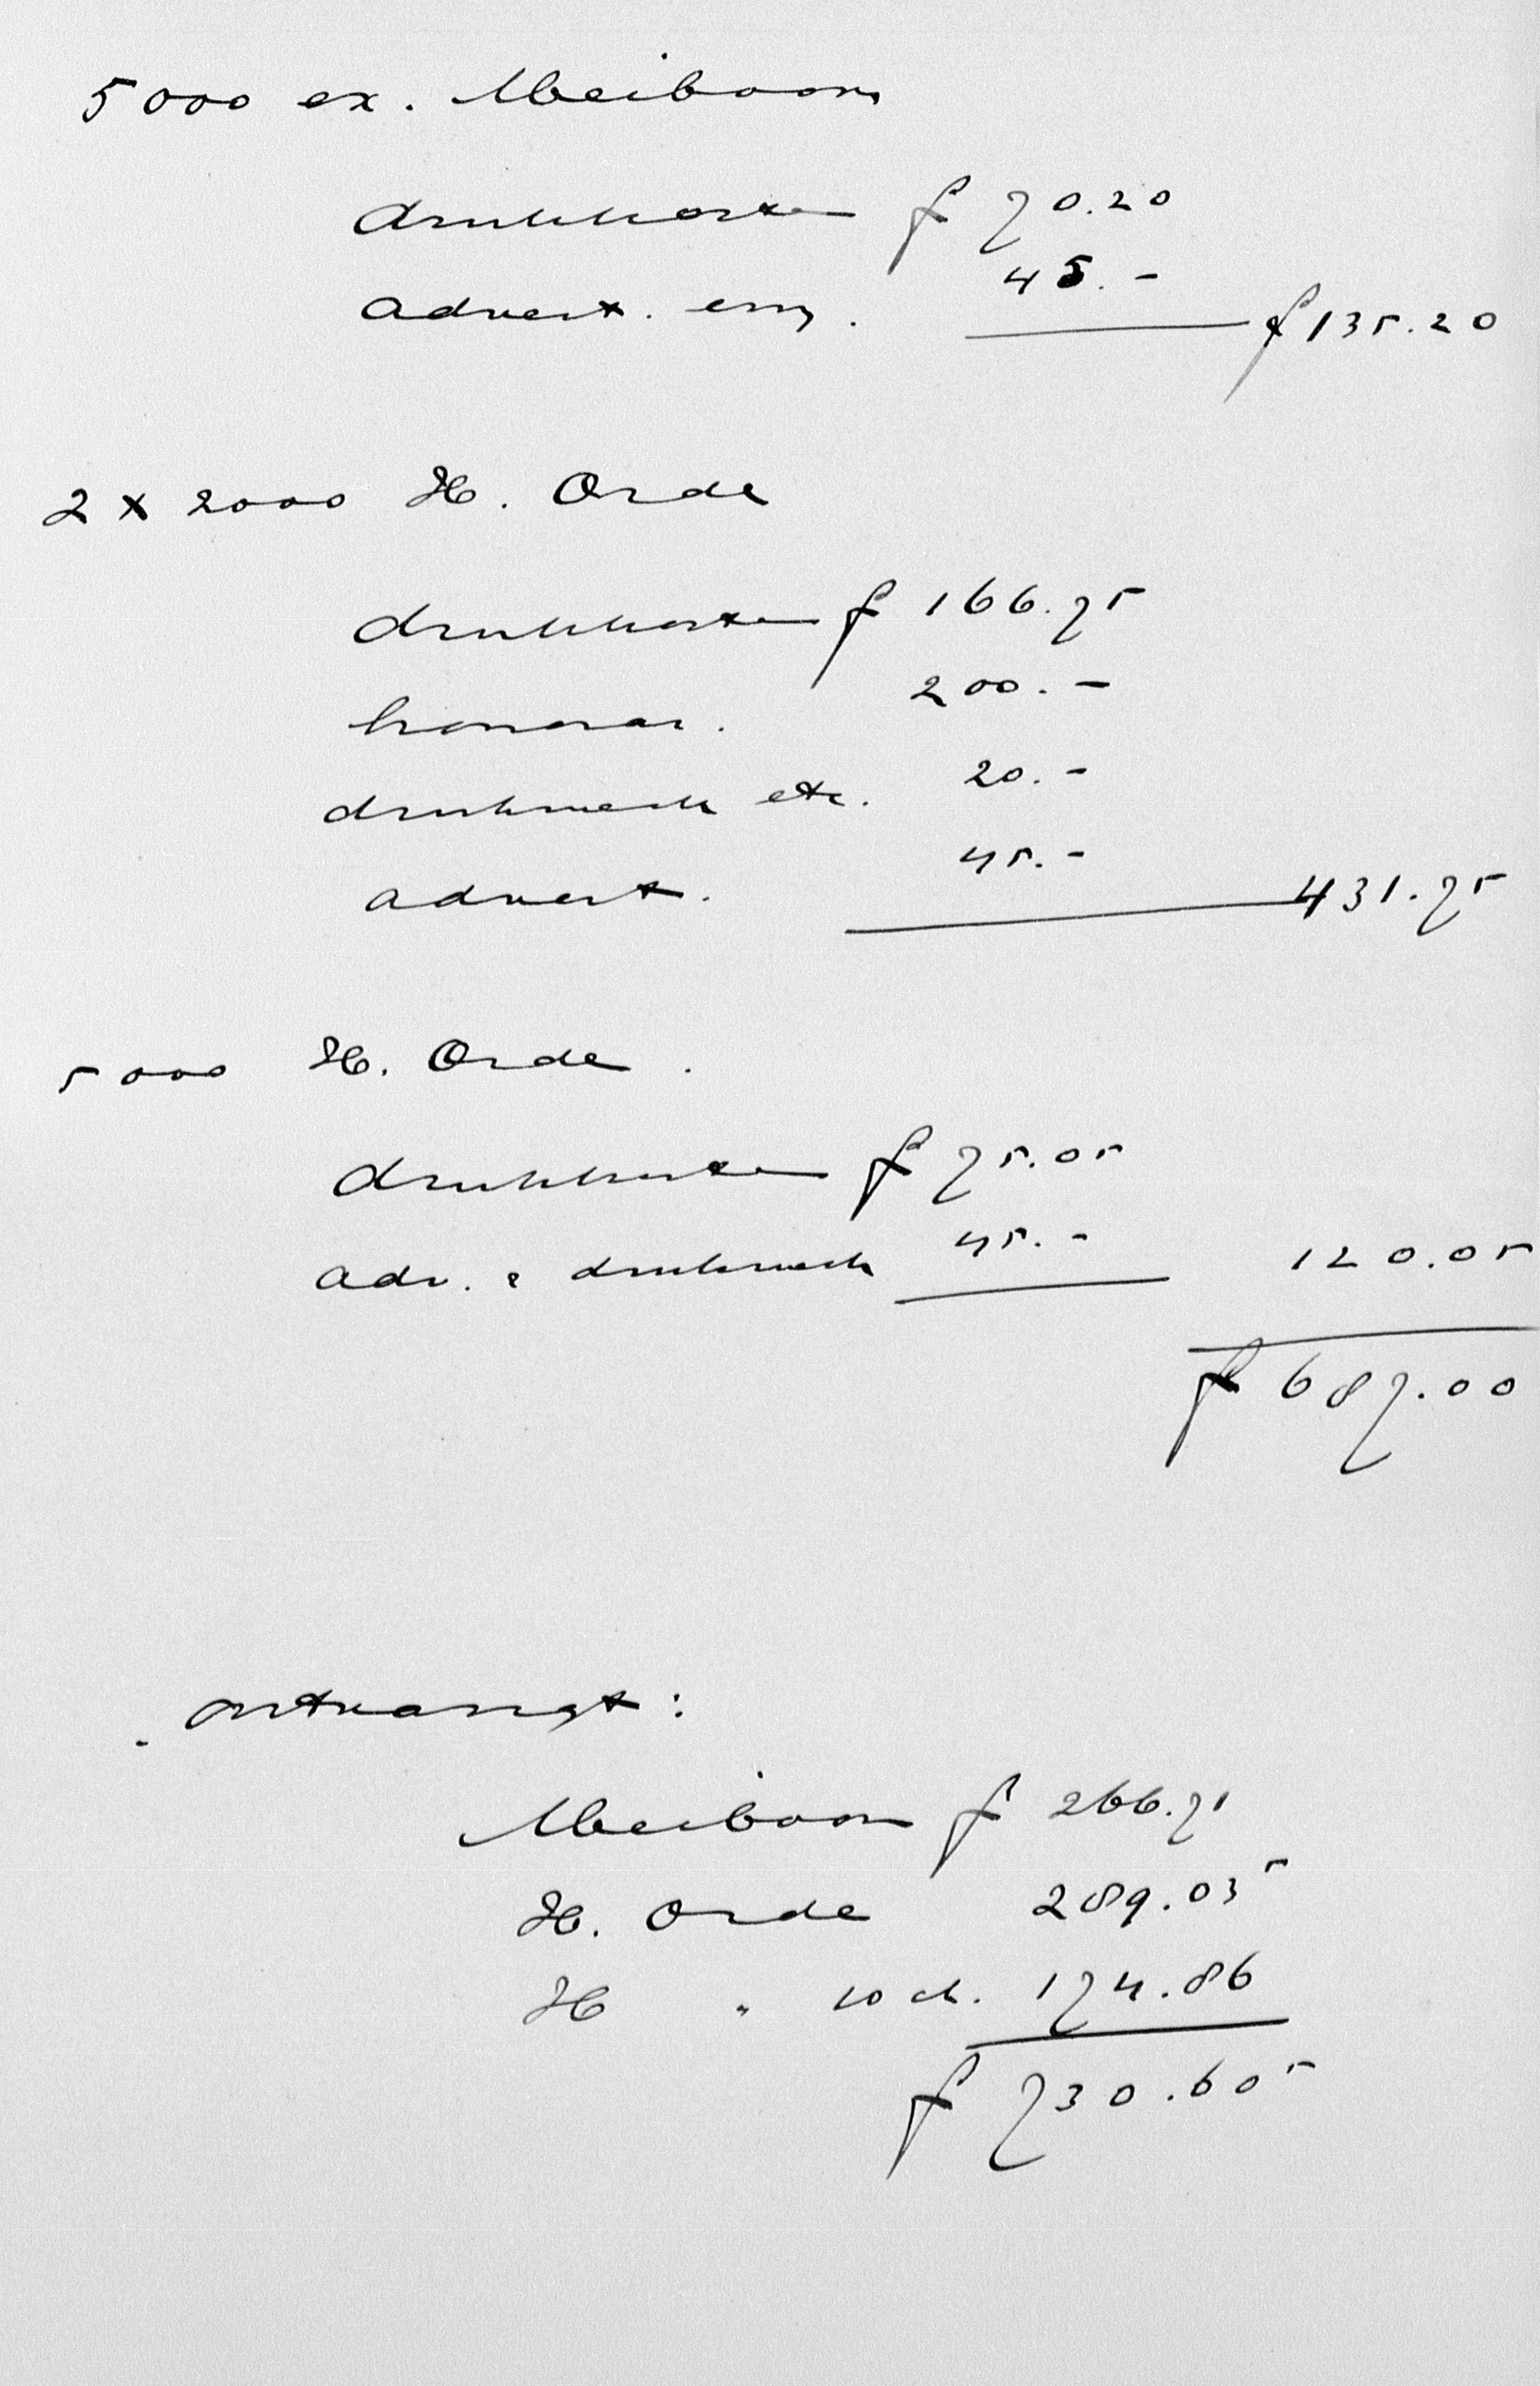 5000 ex. Meiboom
drukkosten f 70.20
advert. enz. 45.-
f 135.20
2 x 2000 H. Orde
drukkosten f 166.75
honorar. 200.-
drukwerk etc. 20.-
advert. 45.-
431.75
5000 H. Orde.
drukkosten f 75.05
adv. & drukwerk 45.- 120.05
f 687.00
ontvangst:
Meiboom f 266.71
H. Orde 289.03⁵
H " 10 ct. 174.86
f 730.60⁵